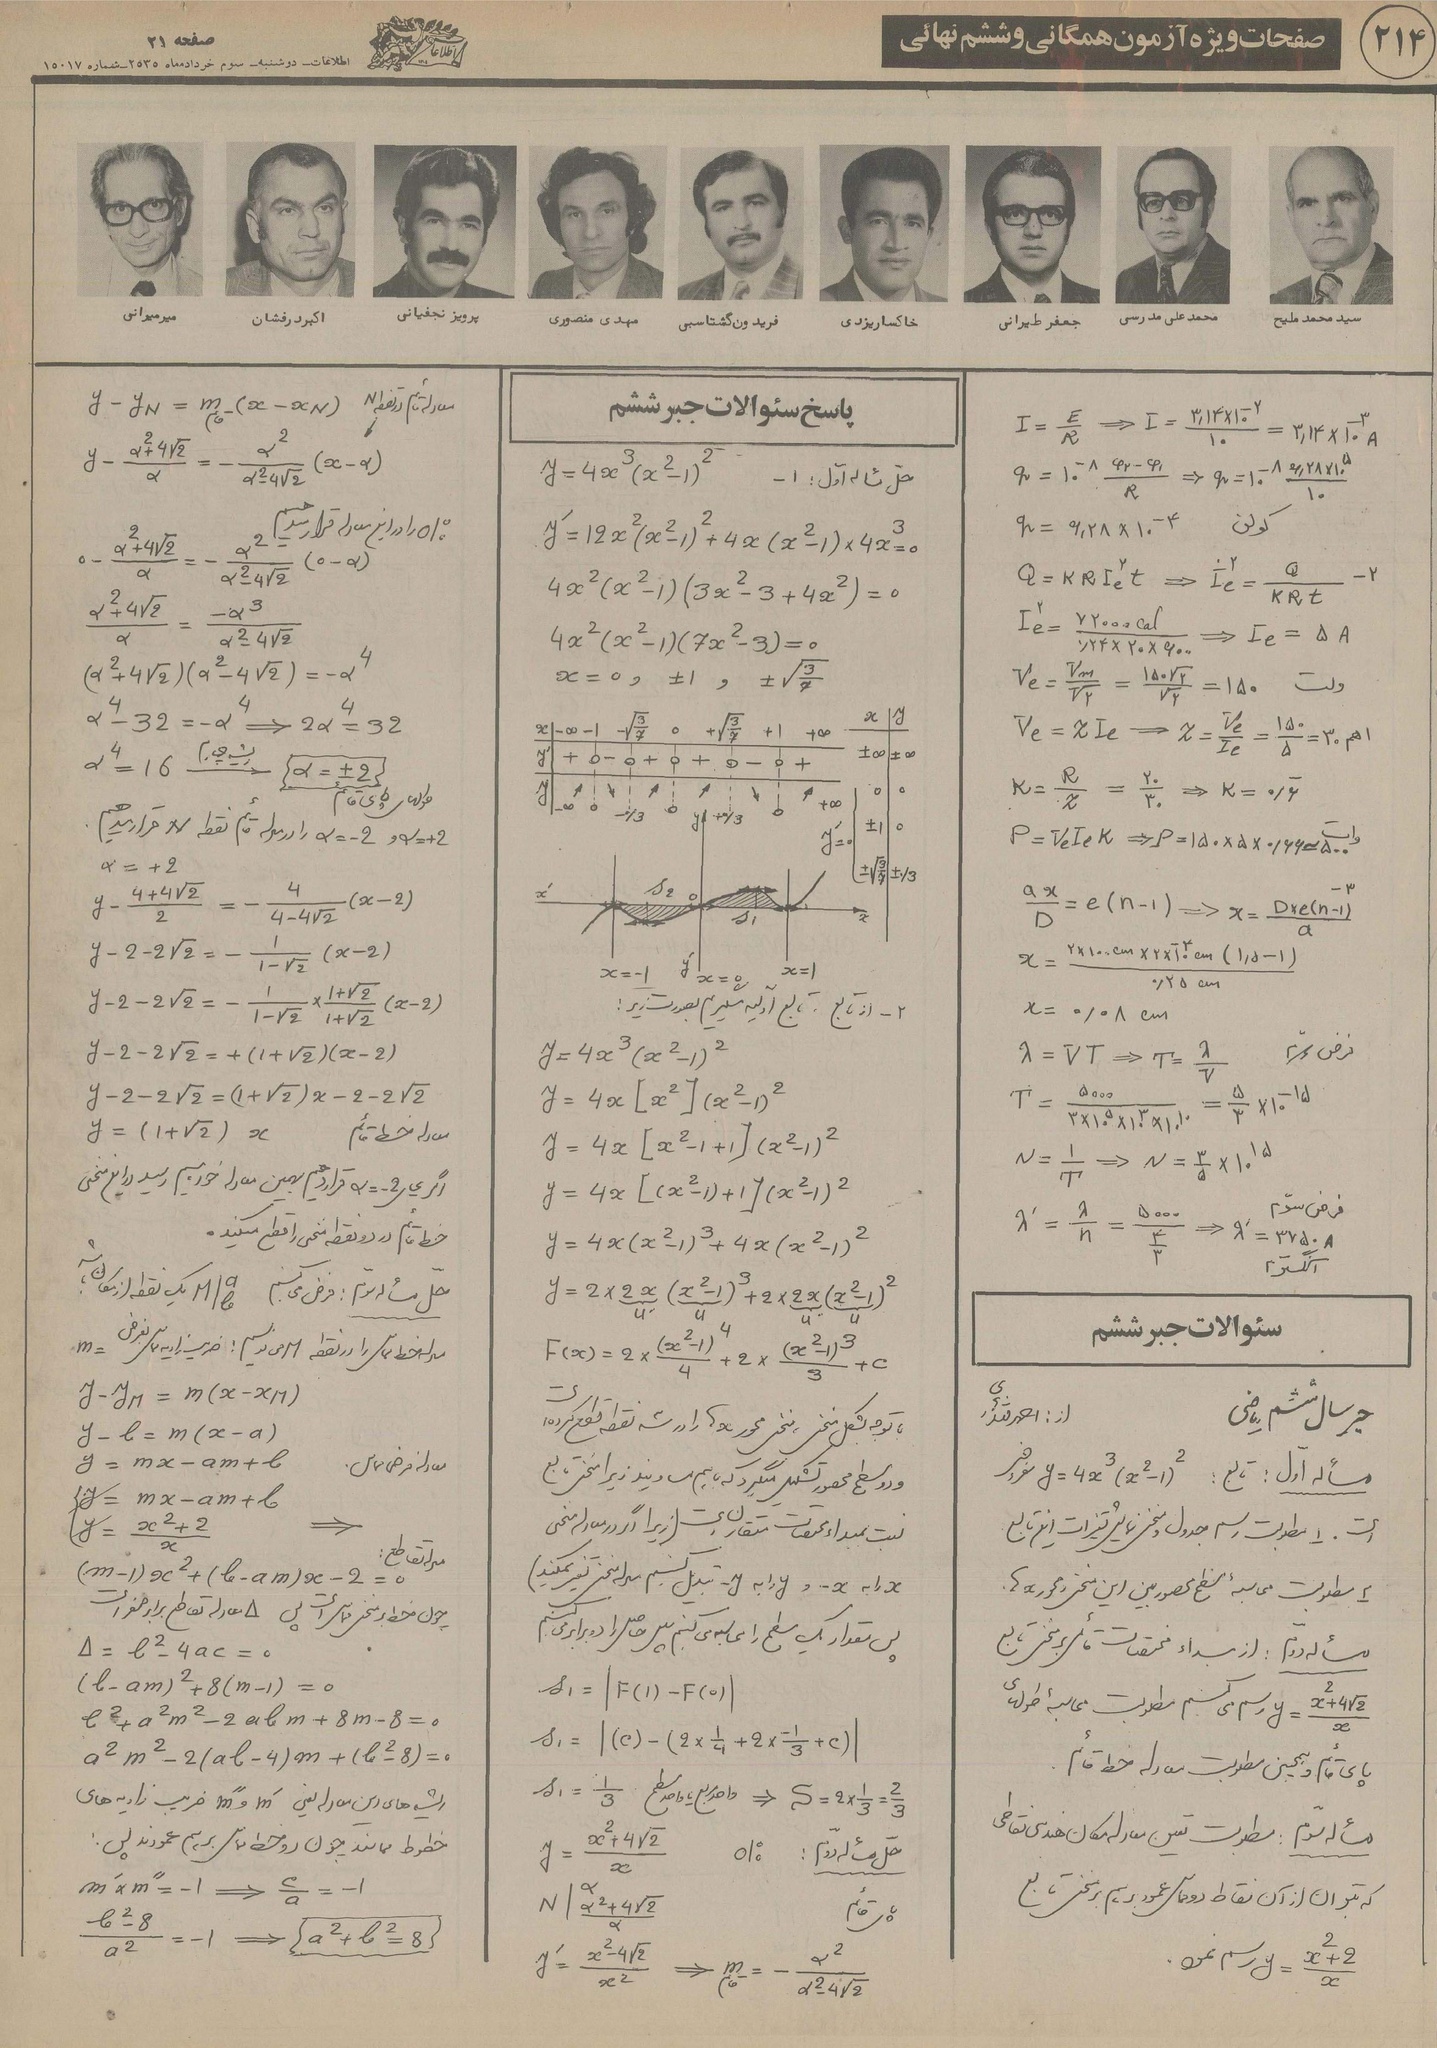 ۲۱۴
صفحات ویژه آزمون همگانی و ششم نهائی
اطلاعات
صفحه ۲۱
اطلاعات ـ دوشنبه ـ سوم خردادماه ۲۵۳۵ ـ شماره ۱۵۰۱۷
سید محمد ملیح
محمد علی مدرسی
جعفر طیرانی
خاکسار یزدی
فریدون گشتاسبی
مهدی منصوری
پرویز نجفیانی
اکبر درفشان
میرمیرانی
I = E/R ⟹ I = ۳٫۱۴×۱۰^-۲ / ۱۰ = ۳٫۱۴×۱۰^-۳ A
کولن
Q = KRIe²t ⟹ Ie² = Q/KRt -۲
Ie² = ۷۲۰۰۰ cal / ۰٫۲۴×۲۰×۶۰۰ ⟹ Ie = ۵ A
Ve = Vm/√۲ = ۱۵۰√۲/√۲ = ۱۵۰ ولت
Ve = ZIe ⟹ Z = Ve/Ie = ۱۵۰/۵ = ۳۰ اهم
K = R/Z = ۲۰/۳۰ ⟹ K = ۰٫۶
P = VeIeK ⟹ P = ۱۵۰×۵×۰٫۶۶ ≃ ۵۰۰ وات
ax/D = e(n-1) ⟹ x = D×e(n-1)/a -۳
x = ۰٫۰۸ cm
λ = VT ⟹ T = λ/V
T = ۵۰۰۰ / ۳×۱۰^۵×۱۰^۳×۱۰^۱۰ = ۵/۳ ×۱۰^-۱۵
N = 1/T ⟹ N = ۳/۵ ×۱۰^۱۵
فرض سوم
λ' = λ/n = ۵۰۰۰ / ۴/۳ ⟹ λ' = ۳۷۵۰ A
آنگستروم
سئوالات جبر ششم
جبر سال ششم ریاضی
مسأله اول : تابع : y = 4x³(x²-1)² مفروض
است . ۱ـ مطلوبست رسم جدول و منحنی نمایش تغییرات این تابع
۲ـ مطلوبست محاسبه سطح محصور بین این منحنی و محور xها .
مسأله دوم : از مبداء مختصات قائمی بر منحنی تابع
y = x²+4√2 / x رسم می‌کنیم مطلوبست محاسبه طولهای
پای قائم و همچنین مطلوبست معادله خط قائم .
مسأله سوم : مطلوبست تعیین معادله مکان هندسی نقاطی
که بتوان از آن نقاط دو مماس عمود بر هم بر منحنی تابع
y = x²+2 / x رسم نمود .
پاسخ سئوالات جبر ششم
حل مسأله اول : ۱-  y = 4x³(x²-1)²
y' = 12x²(x²-1)² + 4x(x²-1)×4x³ = 0
4x²(x²-1)(3x²-3+4x²) = 0
4x²(x²-1)(7x²-3) = 0
x = 0 , ±1 , ±√3/7
x | -∞ -1 -√3/7 0 +√3/7 +1 +∞
y' | + 0 - 0 + 0 + 0 - 0 +
y | -∞ 0 -۰/3 0 +۰/3 0 +∞
x | y
±∞ | ±∞
y'=0
0 | 0
±1 | 0
±√3/7 | ±۰/3
x' S2 0 S1 x
y y'
x=-1 x=0 x=1
y = 4x³(x²-1)²
y = 4x[x²](x²-1)²
y = 4x[x²-1+1](x²-1)²
y = 4x[(x²-1)+1](x²-1)²
y = 4x(x²-1)³ + 4x(x²-1)²
y = 2×2x(x²-1)³ + 2×2x(x²-1)²
u' u u' u
F(x) = 2×(x²-1)⁴/4 + 2×(x²-1)³/3 + C
با توجه بشکل منحنی ، منحنی محور xها را در سه نقطه قطع کرده است
و دو سطح محصور تشکیل میگیرد که با هم مساویند زیرا منحنی تابع
نسبت بمبداء مختصات متقارن است (زیرا اگر در معادله منحنی
x را به -x و y را به -y تبدیل کنیم معادله منحنی تغییر نمیکند)
پس مقدار یک سطح را محاسبه می‌کنیم سپس حاصل را دو برابر می‌کنیم
S1 = |F(1) - F(0)|
S1 = |(C) - (2×1/4 + 2×-1/3 + C)|
S1 = 1/3 واحد مربع یا واحد سطح ⟹ S = 2×1/3 = 2/3
حل مسأله دوم :  y = x²+4√2 / x
پای قائم  N | α , α²+4√2 / α
y' = x²-4√2 / x² ⟹ m قائم = - α² / α²-4√2
معادله قائم در نقطه N  y - yN = m قائم (x - xN)
y - α²+4√2 / α = - α² / α²-4√2 (x-α)
0 را در این معادله قرار میدهیم
0 - α²+4√2 / α = - α² / α²-4√2 (0-α)
α²+4√2 / α = -α³ / α²-4√2
(α²+4√2)(α²-4√2) = -α⁴
α⁴-32 = -α⁴ ⟹ 2α⁴ = 32
α⁴ = 16 ریشه چهارم ⟶ {α = ±2}
طولهای پای قائم
α=+2 و α=-2 را در معادله قائم نقطه N قرار میدهیم .
α = +2
y - 4+4√2 / 2 = - 4 / 4-4√2 (x-2)
y-2-2√2 = - 1 / 1-√2 (x-2)
y-2-2√2 = - 1 / 1-√2 × 1+√2 / 1+√2 (x-2)
y-2-2√2 = +(1+√2)(x-2)
y-2-2√2 = (1+√2)x-2-2√2
y = (1+√2) x معادله خط قائم
اگر بجای α=-2 قرار دهیم بهمین معادله خواهیم رسید و این منحنی
خط قائم در دو نقطه منحنی را قطع میکند .
حل مسأله سوم : فرض می‌کنیم M|a b یک نقطه از مکان باشد
معادله خط مماس را در نقطه M می‌نویسیم : ضریب زاویه مماس بفرض = m
y - yM = m(x - xM)
y - b = m(x - a)
y = mx - am + b معادله فرضی مماس .
y = mx - am + b
y = x²+2 / x ⟹
معادله تقاطع :
(m-1)x² + (b-am)x - 2 = 0
چون خط بر منحنی مماس است پس Δ معادله تقاطع برابر صفر است
Δ = b²-4ac = 0
(b-am)² + 8(m-1) = 0
b² + a²m² - 2abm + 8m - 8 = 0
a²m² - 2(ab-4)m + (b²-8) = 0
ریشه های این معادله یعنی m' و m'' ضریب زاویه های
خطوط مماسند چون دو خط مماس بر هم عمودند پس :
m'×m'' = -1 ⟹ c/a = -1
b²-8 / a² = -1 ⟹ {a²+b² = 8}